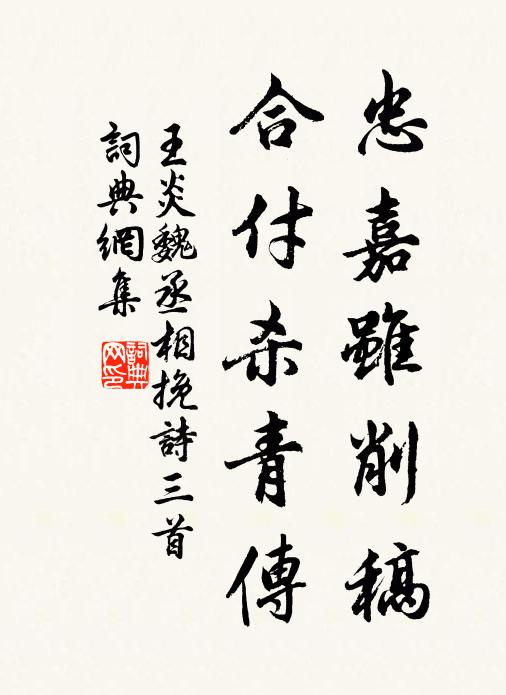 忠嘉雖削稿
合付杀青傳
王炎魏丞相挽詩三首
詞典網集
詞典網印